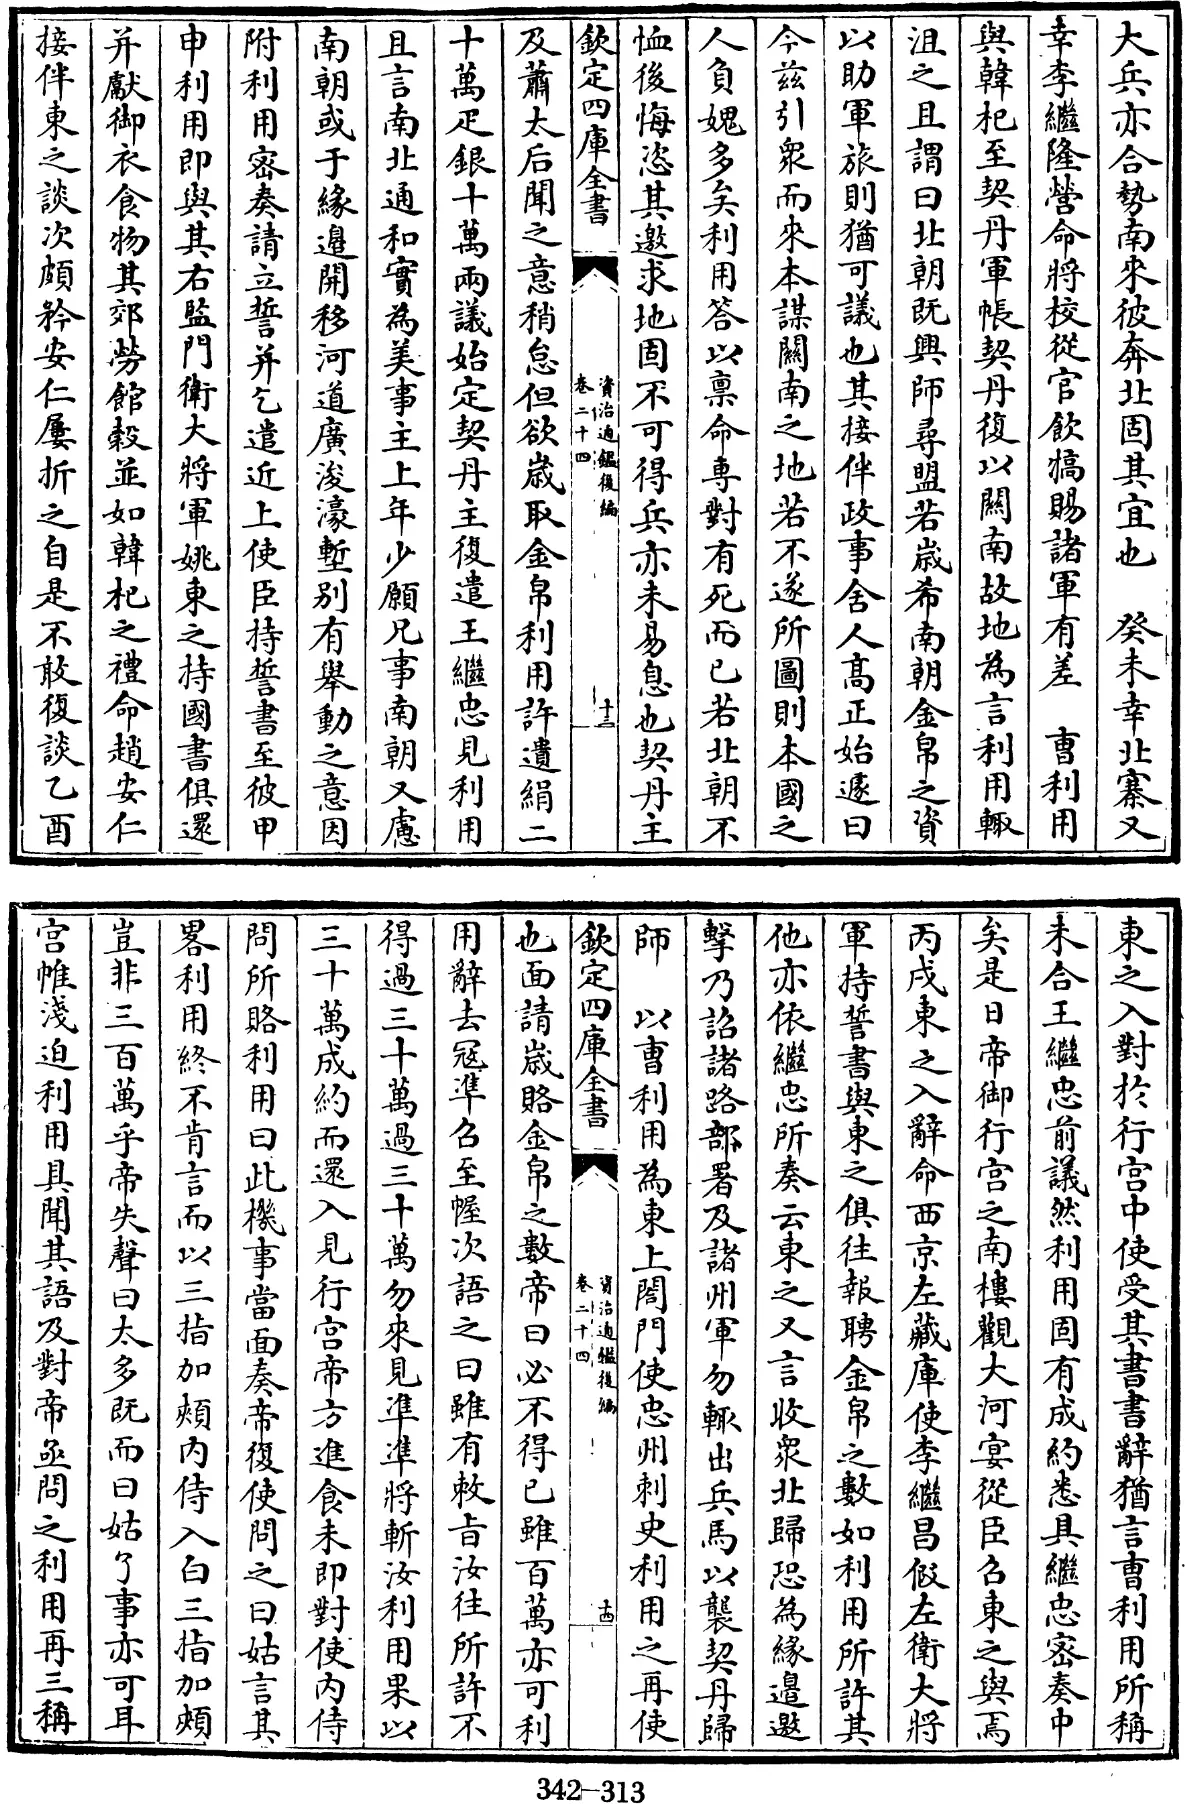 大兵亦合勢南來彼奔北固其宜也　癸未幸北寨又
幸李繼隆營命將校從官飲犒賜諸軍有差　曹利用
與韓杞至契丹軍帳契丹復以關南故地為言利用輒
沮之且謂曰北朝既興師尋盟若歲希南朝金帛之資
以助軍旅則猶可議也其接伴政事舍人高正始遽曰
今兹引衆而來本謀關南之地若不遂所圖則本國之
人負媿多矣利用答以禀命專對有死而已若北朝不
恤後悔恣其邀求地固不可得兵亦未易息也契丹主
欽定四庫全書
資治通鑑後編
卷二十四
十三
及蕭太后聞之意稍怠但欲歲取金帛利用許遺絹二
十萬疋銀十萬兩議始定契丹主復遣王繼忠見利用
且言南北通和實為美事主上年少願兄事南朝又慮
南朝或于緣邊開移河道廣浚濠塹別有舉動之意因
附利用密奏請立誓并乞遣近上使臣持誓書至彼甲
申利用即與其右監門衛大將軍姚東之持國書俱還
并獻御衣食物其郊勞館穀並如韓杞之禮命趙安仁
接伴東之談次頗矜安仁屢折之自是不敢復談乙酉
東之入對於行宫中使受其書書辭猶言曹利用所稱
未合王繼忠前議然利用固有成約悉具繼忠密奏中
矣是日帝御行宫之南樓觀大河宴從臣召東之與焉
丙戌東之入辭命西京左藏庫使李繼昌假左衛大將
軍持誓書與東之俱往報聘金帛之數如利用所許其
他亦依繼忠所奏云東之又言收衆北歸恐為緣邊邀
擊乃詔諸路部署及諸州軍勿輒出兵馬以襲契丹歸
師　以曹利用為東上閤門使忠州刺史利用之再使
欽定四庫全書
資治通鑑後編
卷二十四
十四
也面請歲賂金帛之數帝曰必不得已雖百萬亦可利
用辭去寇準召至幄次語之曰雖有敕旨汝往所許不
得過三十萬過三十萬勿來見準準將斬汝利用果以
三十萬成約而還入見行宫帝方進食未即對使内侍
問所賂利用曰此機事當面奏帝復使問之曰姑言其
畧利用終不肯言而以三指加頰内侍入白三指加頰
豈非三百萬乎帝失聲曰太多既而曰姑了事亦可耳
宫帷淺迫利用具聞其語及對帝亟問之利用再三稱
342-313